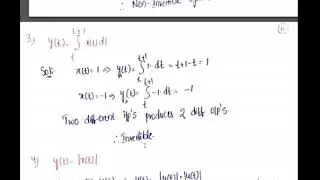 ∴ Non-Invertible
3) y(t) = ∫ₜᵗ⁺¹ x(t) dt
Sol: x(t) = 1 ⇒ y(t) = ∫ₜᵗ⁺¹ 1· dt = t+1-t = 1
x(t) = -1 ⇒ y(t) = ∫ₜᵗ⁺¹ -1· dt = -1
Two different i/p's produces 2 diff o/p's.
∴ Invertible.
4) y(t) = |x(t)|